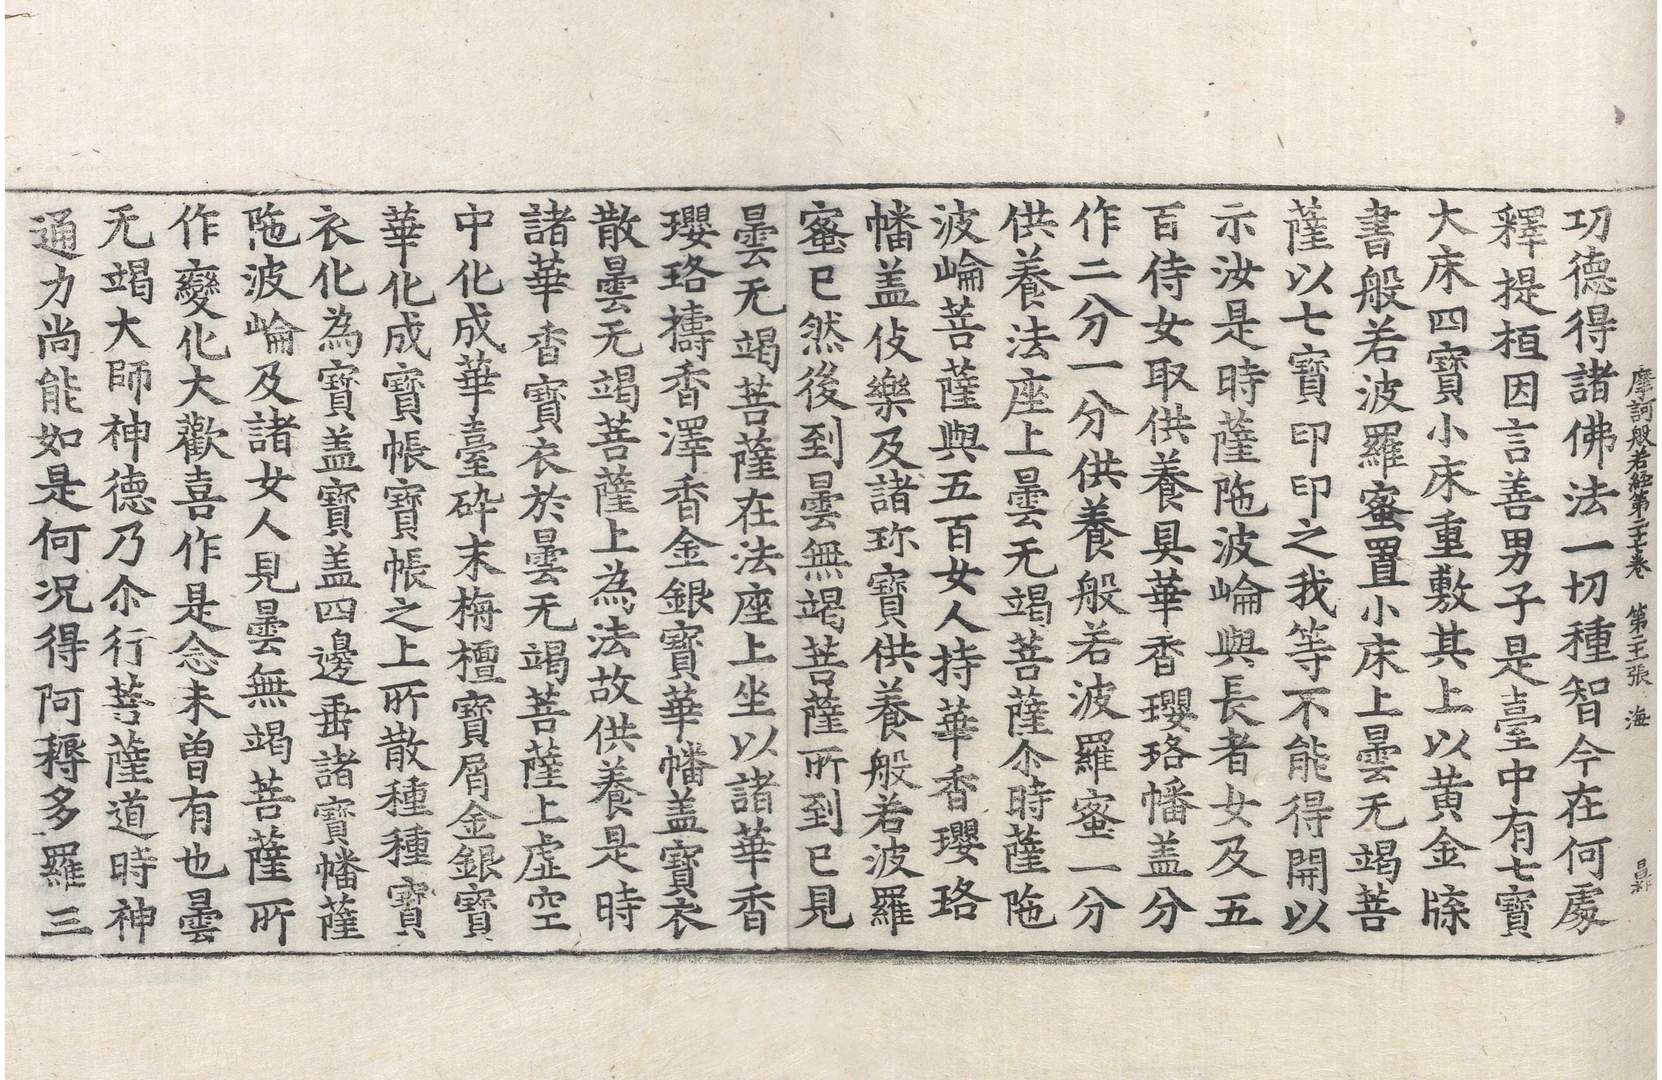 摩訶般若經第二十七卷　第二十張　海
功德得諸佛法一切種智今在何處
釋提桓因言善男子是臺中有七寶
大床四寶小床重敷其上以黃金牒
書般若波羅蜜置小床上曇无竭菩
薩以七寶印印之我等不能得開以
示汝是時薩陁波崘與長者女及五
百侍女取供養具華香瓔珞幡盖分
作二分一分供養般若波羅蜜一分
供養法座上曇无竭菩薩尒時薩陁
波崘菩薩與五百女人持華香瓔珞
幡盖伎樂及諸珎寶供養般若波羅
蜜已然後到曇無竭菩薩所到已見
曇无竭菩薩在法座上坐以諸華香
瓔珞擣香澤香金銀寶華幡盖寶衣
散曇无竭菩薩上為法故供養是時
諸華香寶衣於曇无竭菩薩上虛空
中化成華臺碎末栴檀寶屑金銀寶
華化成寶帳寶帳之上所散種種寶
衣化為寶盖寶盖四邊垂諸寶幡薩
陁波崘及諸女人見曇無竭菩薩所
作變化大歡喜作是念未曾有也曇
无竭大師神德乃尒行菩薩道時神
通力尚能如是何況得阿耨多羅三